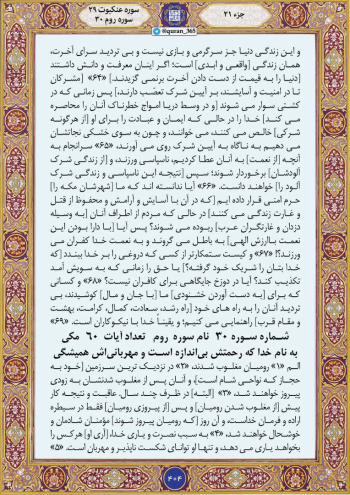 جزء ۲۱
سوره عنکبوت ۲۹
سوره روم ۳۰
@quran_365
و این زندگی دنیا جز سرگرمی و بازی نیست و بی تردید سرای آخرت،
همان زندگی [واقعی و ابدی] است؛ اگر اینان معرفت و دانش داشتند
[دنیا را به قیمت از دست دادن آخرت برنمی گزیدند.] «۶۴» [مشرکان
تا در امنیت و آسایشند، بر آیین شرک تعصب دارند،] پس زمانی که در
کشتی سوار می شوند [و در وسط دریا امواج خطرناک آنان را محاصره
می کند] خدا را در حالی که ایمان و عبادت را برای او [از هرگونه
شرکی] خالص می کنند، می خوانند، و چون به سوی خشکی نجاتشان
می دهیم به ناگاه به آیین شرک روی می آورند، «۶۵» سرانجام به
آنچه [از نعمت] به آنان عطا کردیم، ناسپاسی ورزند، و [از زندگی شرک
آلودشان] برخوردار شوند؛ سپس [نتیجه این ناسپاسی و زندگی شرک
آلود را] خواهند دانست. «۶۶» آیا ندانسته اند که ما [شهرشان مکه را]
حرم امنی قرار داده ایم [که در آن با آسایش و آرامش و محفوظ از قتل
و غارت زندگی می کنند] در حالی که مردم از اطراف آنان [به وسیله
دزدان و غارتگران عرب] ربوده می شوند؟ پس آیا [با دارا بودن این
نعمت باارزش الهی] به باطل می گروند و به نعمت خدا کفران می
ورزند؟! «۶۷» و کیست ستمکارتر از کسی که دروغی را بر خدا ببندد [که
خدا بتان را شریک خود گرفته؟] یا حق را زمانی که به سویش آمد
تکذیب کند؟ آیا در دوزخ جایگاهی برای کافران نیست؟ «۶۸» و کسانی
که برای [به دست آوردن خشنودی] ما [با جان و مال] کوشیدند، بی
تردید آنان را به راه های خود [راه رشد، سعادت، کمال، کرامت، بهشت
و مقام قرب] راهنمایی می کنیم؛ و یقیناً خدا با نیکوکاران است. «۶۹»
شماره سوره ۳۰ نام سوره روم تعداد آیات ۶۰ مکی
به نام خدا که رحمتش بی‌اندازه است و مهربانی‌اش همیشگی
الم «۱» رومیان مغلوب شدند، «۲» در نزدیک ترین سرزمین [خود به
حجاز که نواحی شام است] و آنان پس از مغلوب شدنشان به زودی
پیروز خواهند شد، «۳» [البته] در ظرف چند سال. عاقبت و نتیجه کار
پیش [از مغلوب شدن رومیان] و پس [از پیروزی رومیان] فقط در سیطره
اراده و فرمان خداست، و آن روز [که رومیان پیروز شوند] مؤمنان شادمان و
خوشحال خواهند شد، «۴» به سبب نصرت و یاری خدا، [آری او] هر کس را
بخواهد یاری می دهد، و تنها او توانای شکست ناپذیر و مهربان است. «۵»
۴۰۴